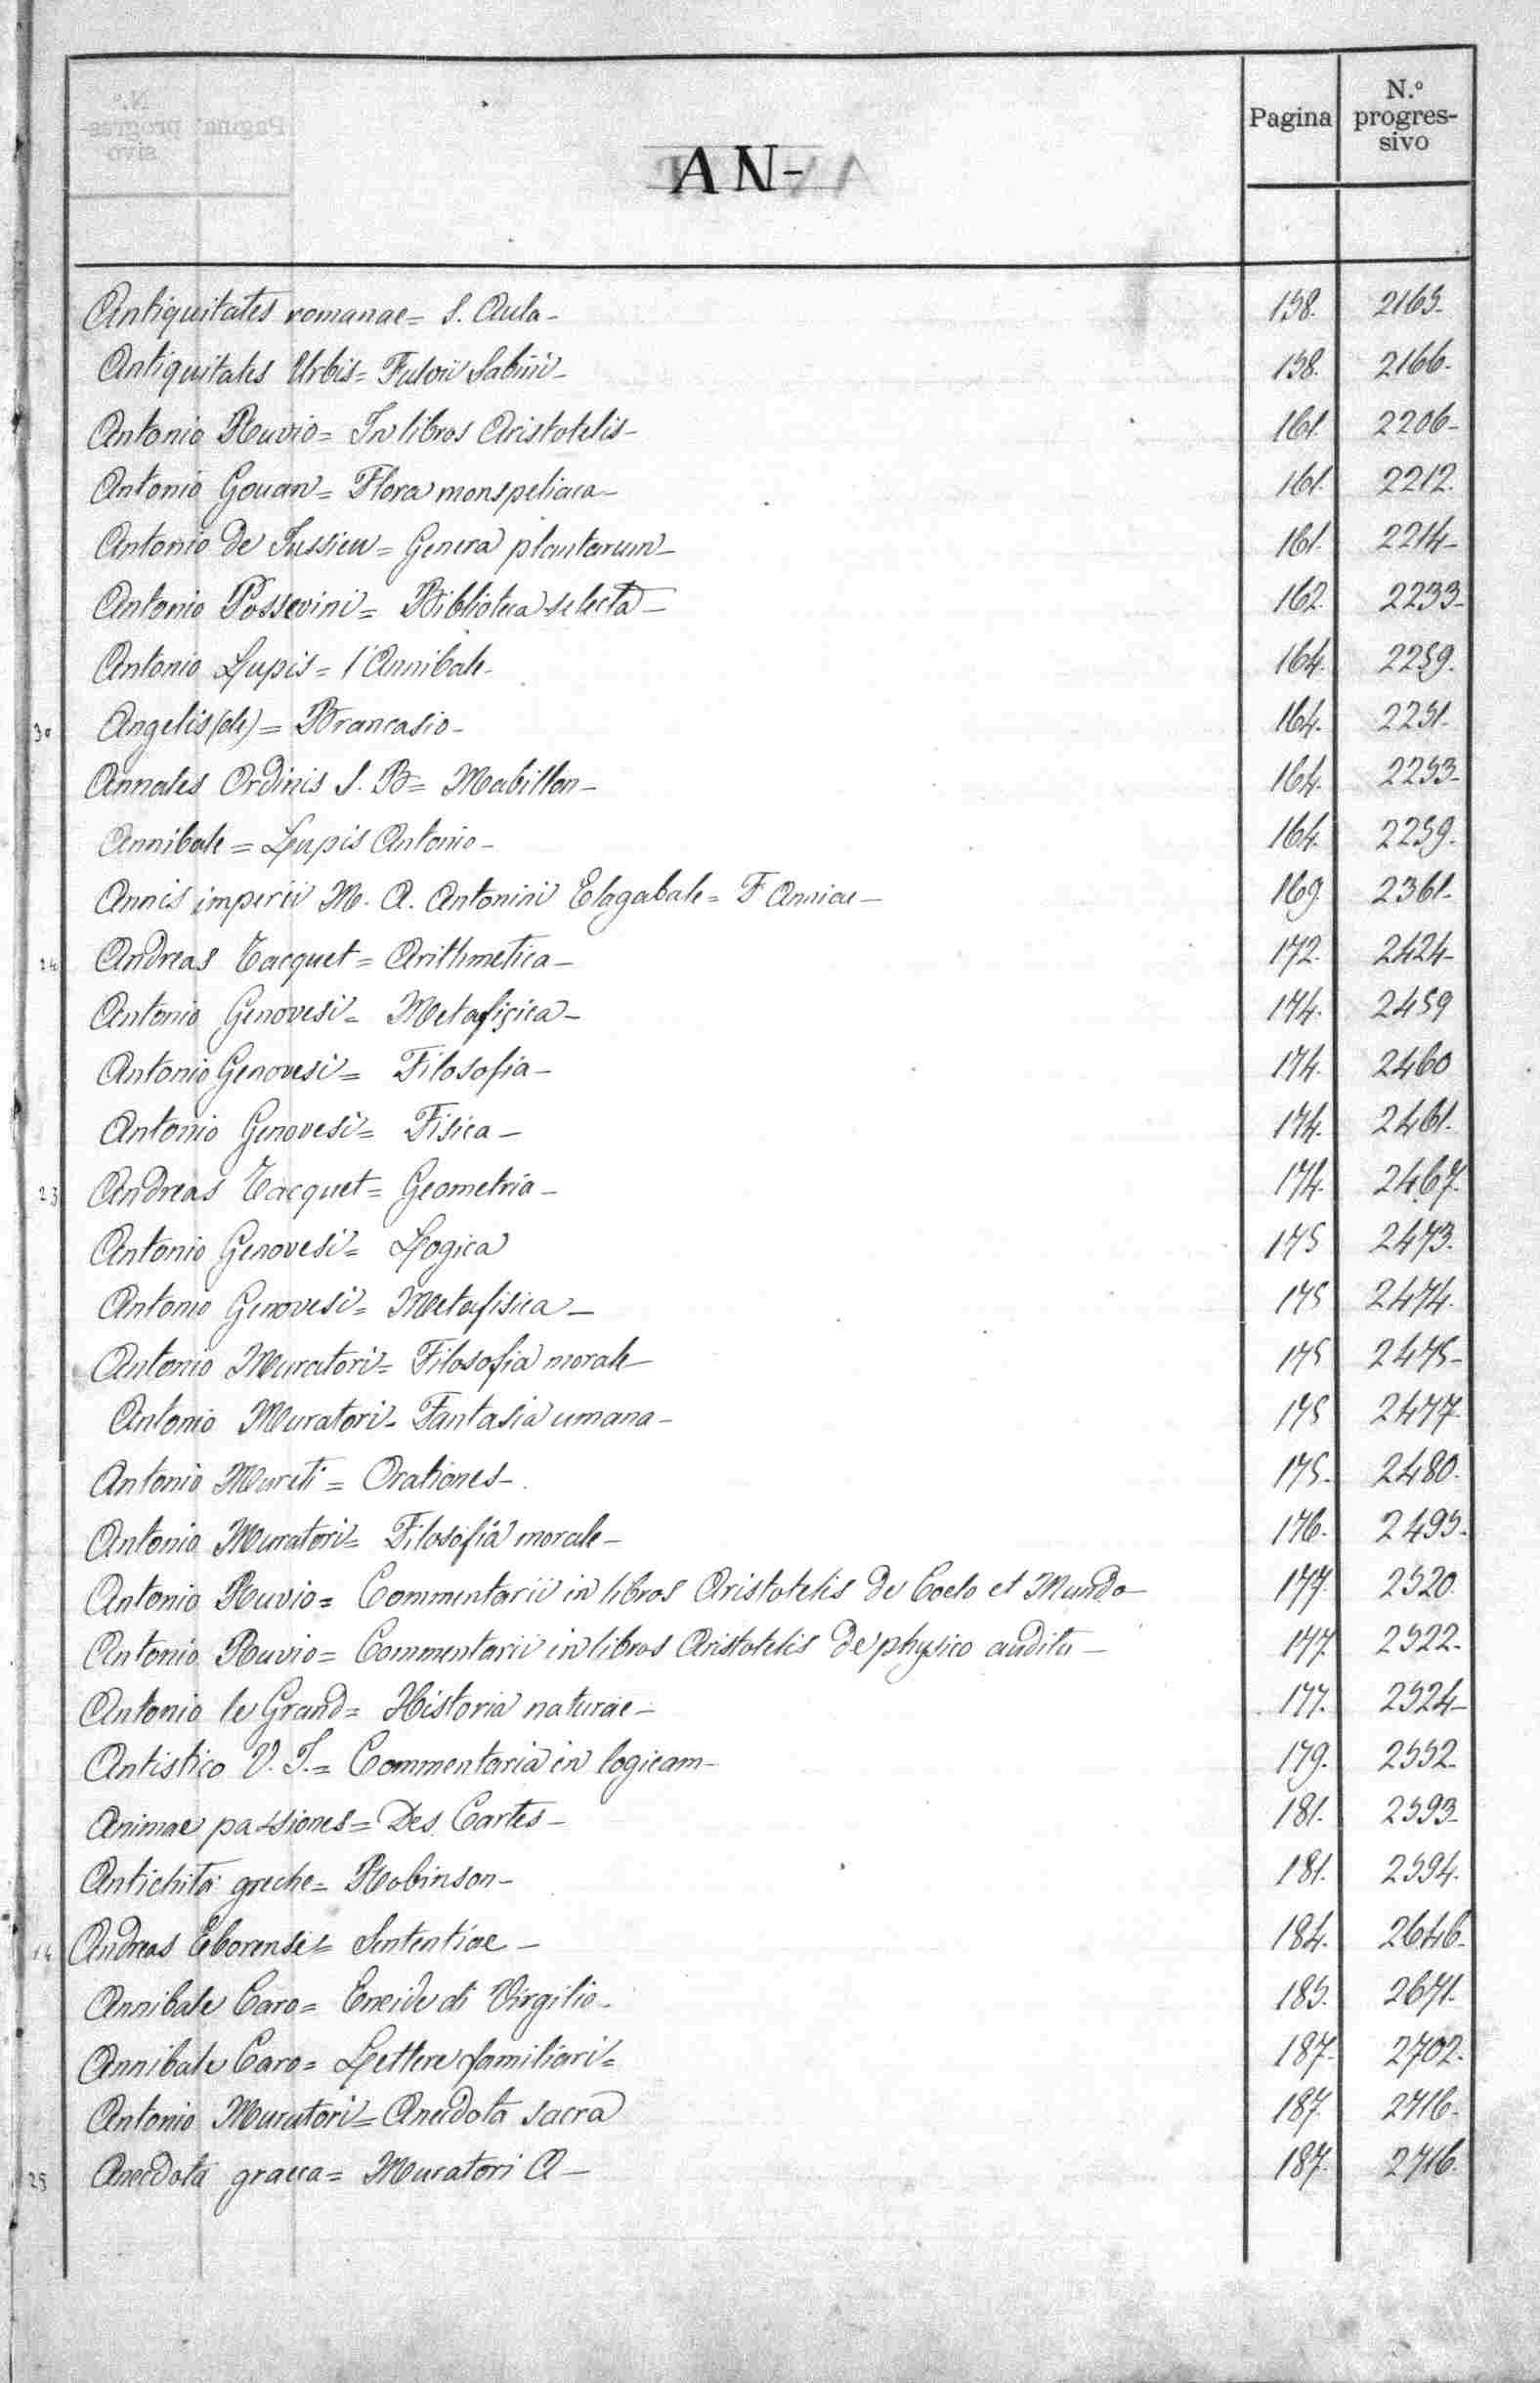 Pagina
N.º progres-
sivo
AN-
Antiquitates romanae = S. Aula - 158. 2165-
Antiquitates Urbis = Fulvii Sabini - 158. 2166-
Antonio Ruvio = In libros Aristotelis - 161. 2206-
Antonio Gouan = Flora monspeliaca - 161. 2212
Antonio de Jussieu = Genera plantarum - 161. 2214-
Antonio Possevini = Biblioteca selecta - 162. 2233-
Antonio Lupis = l'Annibale - 164. 2259.
30 Angelis (de) = Brancasio - 164. 2251-
Annales Ordinis S. B = Mabillon - 164. 2253-
Annibale = Lupis Antonio - 164. 2259.
Annis imperii M. A. Antonini Elagabale = F Anniae - 169. 2361-
24 Andreas Tacquet = Arithmetica - 172. 2424-
Antonio Genovesi = Metafisica - 174. 2459
Antonio Genovesi = Filosofia - 174. 2460
Antonio Genovesi = Fisica - 174. 2461.
23 Andreas Tacquet = Geometria - 174. 2467.
Antonio Genovesi = Logica 175 2473.
Antonio Genovesi = Metafisica - 175 2474.
Antonio Muratori = Filosofia morale - 175 2475-
Antonio Muratori - Fantasia umana - 175 2477.
Antonio Mureti = Orationes - 175. 2480.
Antonio Muratori = Filosofia morale - 176. 2495.
Antonio Ruvio = Commentarii in libros Aristotelis de Coelo et Mundo - 177. 2520.
Antonio Ruvio = Commentarii in libros Aristotelis de physico auditu - 177. 2522-
Antonio le Grand = Historia naturae - 177. 2524-
Antistico V. J. = Commentaria in logicam - 179. 2552-
Animae passiones = Des Cartes - 181. 2593-
Antichità greche = Robinson - 181. 2594.
14 Andreas Eborensis = Sententiae - 184. 2646-
Annibale Caro = Eneide di Virgilio - 185. 2671-
Annibale Caro = Lettere familiari = 187. 2702-
Antonio Muratori = Anecdota sacra 187. 2716-
25 Anecdota graeca = Muratori A - 187. 2716.